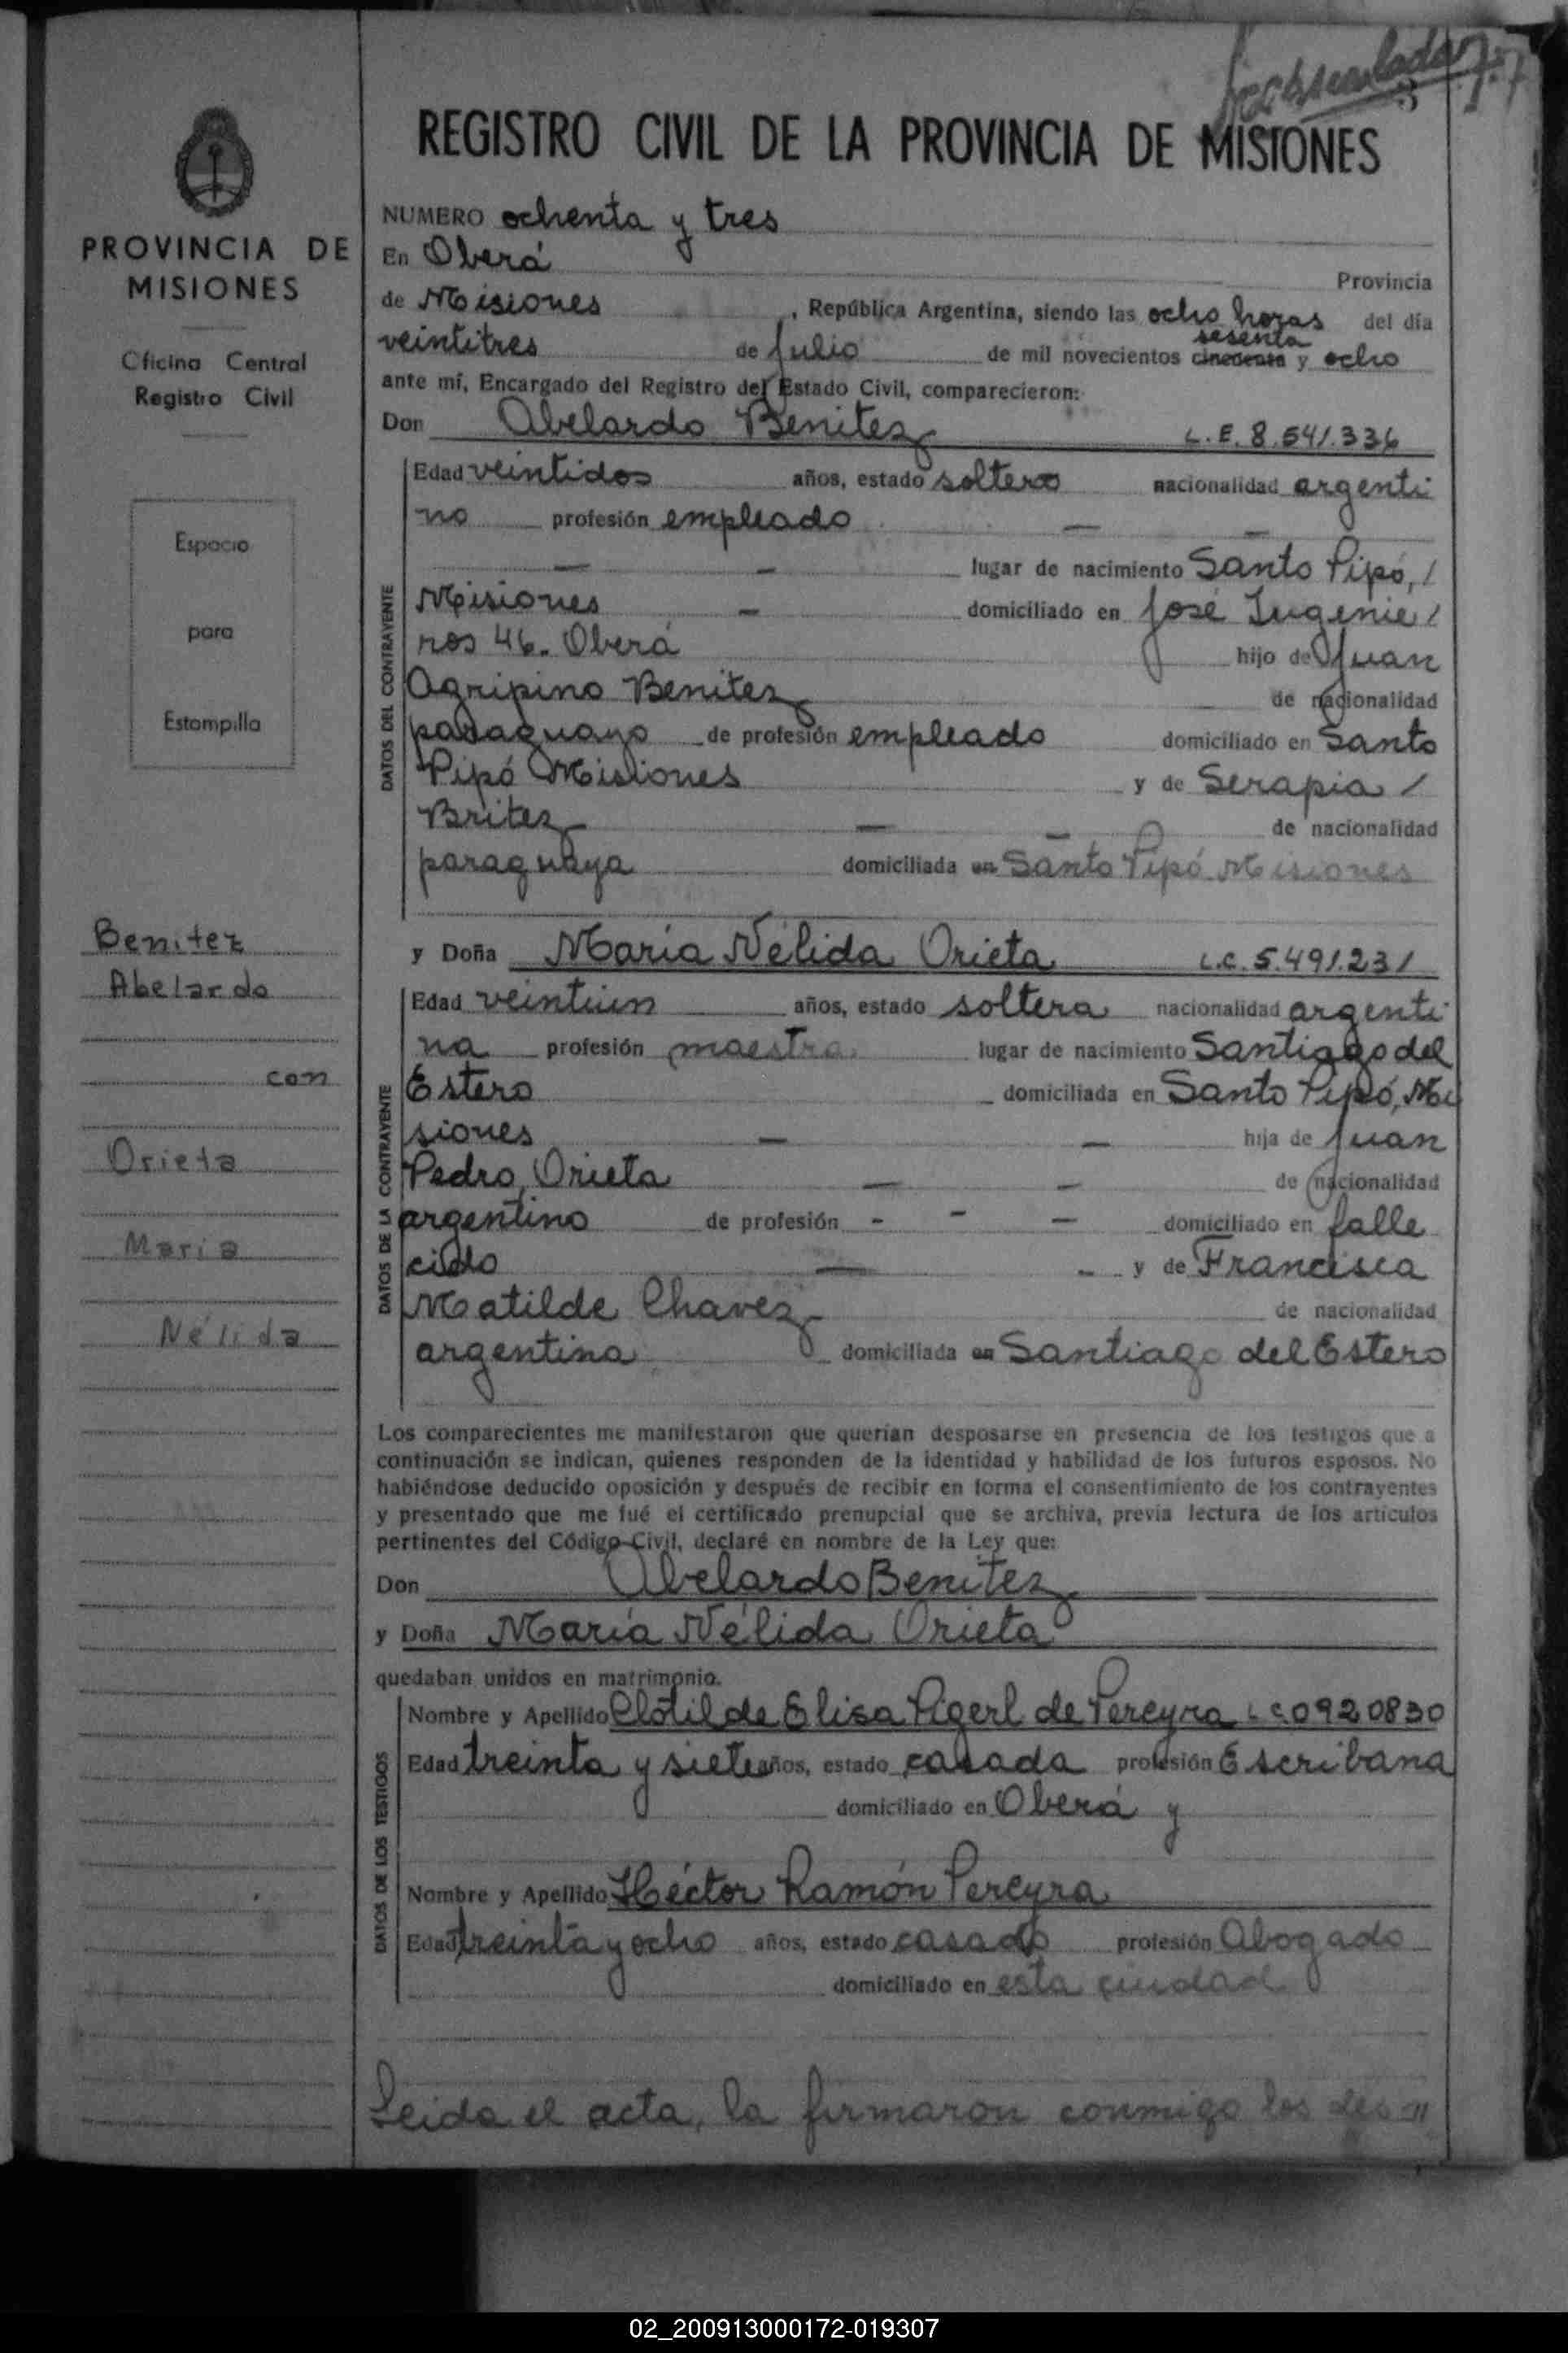 REGISTRO CIVIL DE LA PROVINCIA DE MISIONES
PROVINCIA DE
MISIONES
Oficina Central
Registro Civil
Espacio
para
Estampilla
Benitez
Abelardo
con
Orieta
Maria
Nélida
NUMERO ochenta y tres
En Oberá
Provincia
de Misiones, República Argentina, siendo las ocho horas del día
sesenta
veintitres de Julio de mil novecientos cincuenta y ocho
ante mí, Encargado del Registro del Estado Civil, comparecieron:
Don Abelardo Benitez L.E. 8.541.336
DATOS DEL CONTRAYENTE
Edad veintidos años, estado soltero nacionalidad argenti
no profesión empleado — —
— — lugar de nacimiento Santo Pipó, /
Misiones — domiciliado en José Ingenie /
ros 46. Oberá hijo de Juan
Agripino Benitez de nacionalidad
paraguayo de profesión empleado domiciliado en Santo
Pipó Misiones y de Serapia /
Britez — — de nacionalidad
paraguaya domiciliada en Santo Pipó Misiones
y Doña María Nélida Orieta L.C. 5.491.231
DATOS DE LA CONTRAYENTE
Edad veintiún años, estado soltera nacionalidad argenti
na profesión maestra lugar de nacimiento Santiago del
Estero domiciliada en Santo Pipó, Mi
siones — — hija de Juan
Pedro Orieta — — de nacionalidad
argentino de profesión - - — domiciliado en falle
cido — - y de Francisca
Matilde Chavez de nacionalidad
argentina domiciliada en Santiago del Estero
Los comparecientes me manifestaron que querían desposarse en presencia de los testigos que a
continuación se indican, quienes responden de la identidad y habilidad de los futuros esposos. No
habiéndose deducido oposición y después de recibir en forma el consentimiento de los contrayentes
y presentado que me fué el certificado prenupcial que se archiva, previa lectura de los artículos
pertinentes del Código Civil, declaré en nombre de la Ley que:
Don Abelardo Benitez
y Doña María Nélida Orieta
quedaban unidos en matrimonio.
DATOS DE LOS TESTIGOS
Nombre y Apellido Clotilde Elisa Pigerl de Pereyra L C 0920830
Edad treinta y siete años, estado casada profesión Escribana
domiciliado en Oberá y
Nombre y Apellido Héctor Ramón Pereyra
Edad treinta y ocho años, estado casado profesión Abogado
domiciliado en esta ciudad
Leida el acta, la firmaron conmigo los des "
02_200913000172-019307